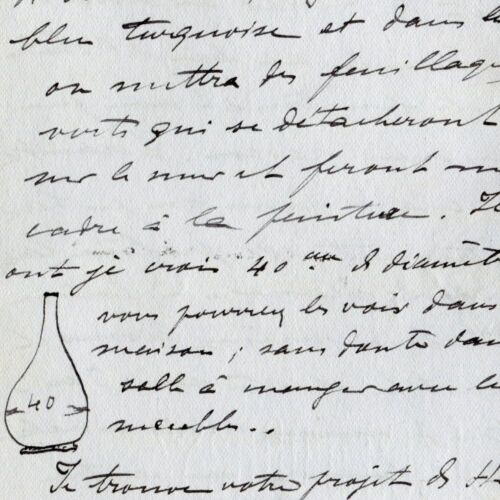 bleu turquoise et dans
on mettra des feuillag
verts qui se détacheront
sur le mur et feront
cadre à la peinture.
ont je crois 40 de diamèt
vous pourrez les voir dans
maison; sans doute dan
salle à manger avec le
meubles..
40
Je trouve votre projet de H